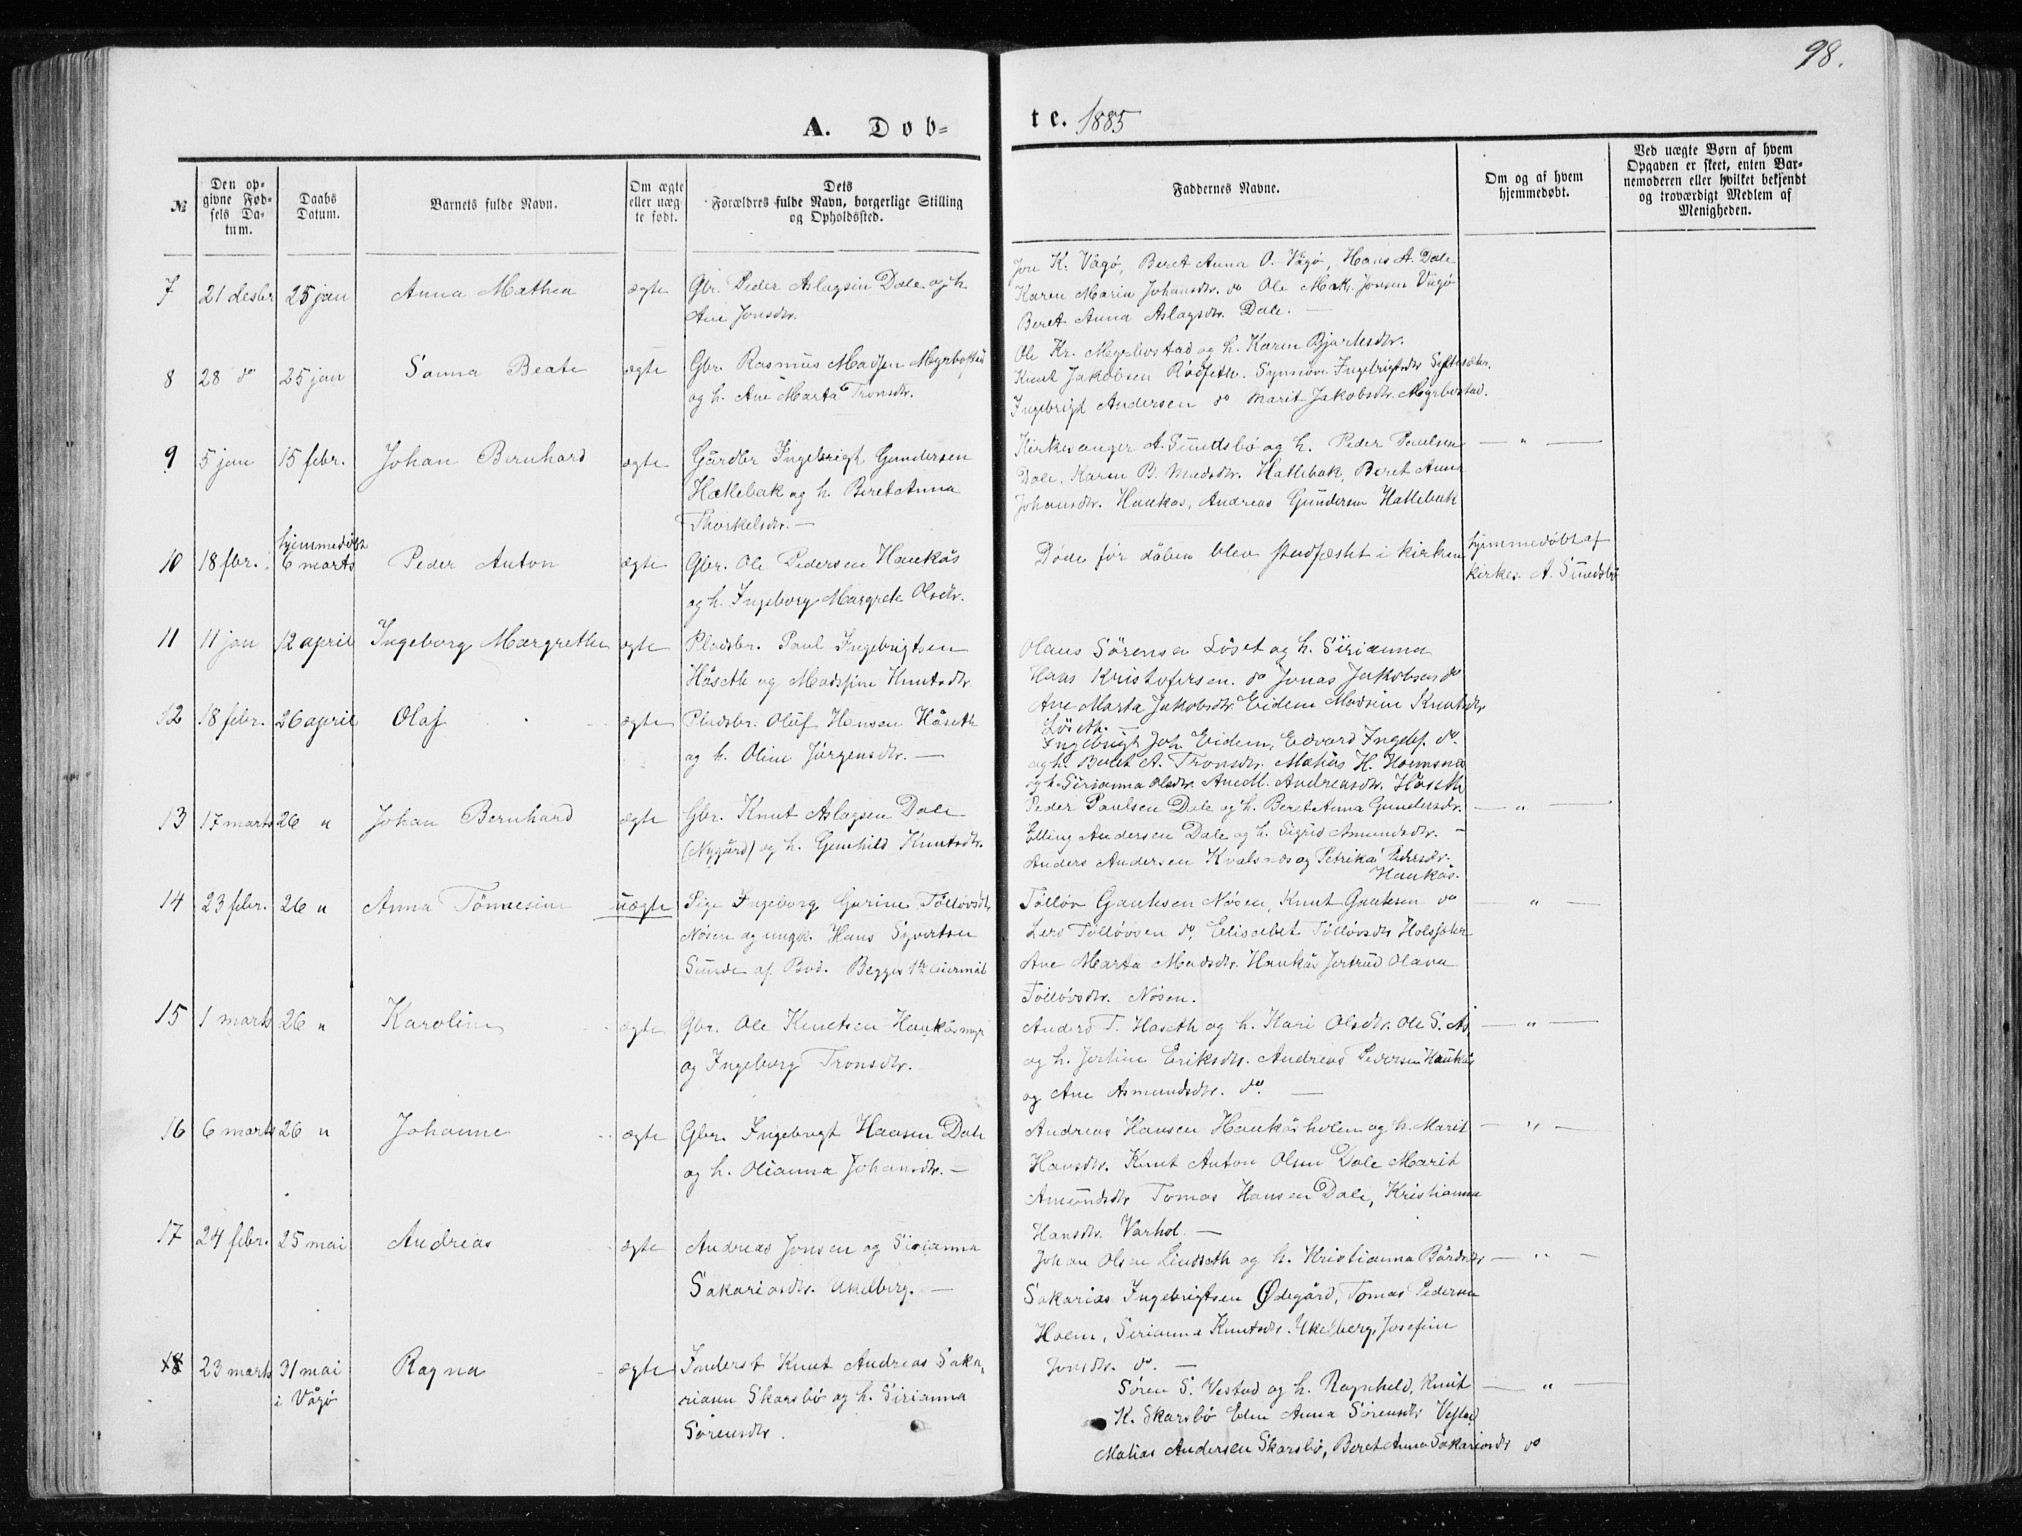 98.
A. Døb-
te. 1885
№
Den op-
givne Fød-
sels Da-
tum.
Daabs
Datum.
Barnets fulde Navn.
Om ægte
eller uæg-
te født.
Dets
Forældres fulde Navn, borgerlige Stilling
og Opholdssted.
Faddernes Navne.
Om og af hvem
hjemmedøbt.
Ved uægte Børn af hvem
Opgaven er skeet, enten Bar-
nemoderen eller hvilket bekjendt
og troværdigt Medlem af
Menigheden.
7 21 desbr 25 jan Anna Mathea ægte Gbr. Peder Aslagsen Dale og h.
Ane Jonsdtr.
Jon K. Vågø, Beret Anna O. Vågø, Hans A. Dale
Karen Maria Johansdtr. do Ole Mat. Jonsen Vågø
Beret Anna Aslagsdtr. Dale. —
8 28 do 25 jan Sanna Beate ægte Gbr. Rasmus Madsen Myrbostad
og h. Ane Marta Tronsdtr.
Ole Kr. Myrbostad og h. Karen Bjarhsdtr.
Knut Jakobsen Rødseth. Synnøve Ingebrigtsdtr
Ingebrigt Andersen do Marit Jakobsdtr. Myrbostad.
9 5 jan 15 febr. Johan Bernhard ægte Gårdbr Ingebrigt Gundersen
Hatlebak og h. Beret Anna
Thorkelsdtr. —
Kirkesanger A. Smedsbø og h. Peder Paulsen — " —
Dale, Karen B. Madsdtr. Hatlebak, Beret Anna
Johansdtr. Haukås, Andreas Gundersen Hatlebak
10 18 fbr. hjemmedøbt
6 marts Peder Anton ægte Gbr. Ole Pedersen Haukås
og h. Ingeborg Margrete Olsdtr.
Døde før dåben blev stadfæstet i kirken
hjemmedøbt af
kirkes. A. Smedsbø
11 11 jan 12 april Ingeborg Margrethe ægte Pladsbr. Paul Ingebrigtsen
Håseth og Madsine Knutsdtr
Olaus Sørensen Løset og h. Sirianna
Hans Kristofersen do Jonas Jakobsen do
Ane Marta Jakobsdtr Eidem Madsine Knutsdtr
Løseth. —
12 18 febr. 26 april Olaf ægte Pladsbr. Oluf Hansen Håseth
og h. Oline Jørgensdtr. —
Ingebrigt Joh. Eidem, Edvard Ingebr. do.
og h. Beret A. Tronsdtr. Matias H. Hornsnæs
og h. Sirianna Olsdtr. Ane M. Andreasdtr. Håseth
13 17 marts 26 " Johan Bernhard ægte Gbr. Knut Aslagsen Dale
(Nygård) og h. Gunhild Knutsdtr.
Peder Paulsen Dale og h. Beret Anna Gundersdtr. — " —
Elling Andersen Dale og h. Sigrid Amundsdtr. —
Anders Andersen Kvalsnes og Petrika Pedersdtr.
Haukås.
14 23 febr. 26 " Anna Tomesine uægte Pige Ingeborg Gurine Tølløvsdtr
Nøsen og ungk. Hans Syvertsen
Sunde af Bud. Begges 1ste leiermål
Tølløv Gautesen Nøsen, Knut Gautesen do — " —
Lars Tølløvsen do, Elisabet Tølløvsdtr
Ane Marta Madsdtr. Haukås Jertrud Olava
Tølløvsdtr. Nøsen.
15 1 marts 26 " Karoline ægte Gbr. Ole Knutsen Haukåsmyr
og Ingeborg Tronsdtr.
Anders T. Haseth og h. Kari Olsdtr. Ole S. Ås — " —
og h. Jertine Eriksdtr. Andreas Pedersen Haukås
og Ane Asmundsdtr. do. —
16 6 marts 26 " Johanne ægte Gbr. Ingebrigt Hansen Dale
og h. Olianna Johansdtr. —
Andreas Hansen Haukåsholen og h. Marit — " —
Hansdtr. Knut Anton Olsen Dale Marit
Amundsdtr Tomas Hansen Dale, Kristianna
Hansdtr. Varhol. —
17 24 febr. 25 mai Andreas ægte Andreas Jonsen og Sirianna
Sakariasdtr. Ukelberg. —
Johan Olsen Lindseth og h. Kristianna Bårdsdtr — " —
Sakarias Ingebrigtsen Ødegård, Tomas Pedersen
Holm, Sirianna Knutsdtr. Ukelberg, Josefine
Jonsdtr. do. —
18 23 marts 31 mai
i Vågø Ragna ægte Inderst Knut Andreas Saka-
riasen Skarsbø og h. Sirianna
Sørensdtr.
Søren S. Vestad og h. Ragnhild, Knut — " —
K. Skarsbø Edn Anna Sørensdtr Vestad
Matias Andersen Skarsbø, Beret Anna Sakariasdtr do